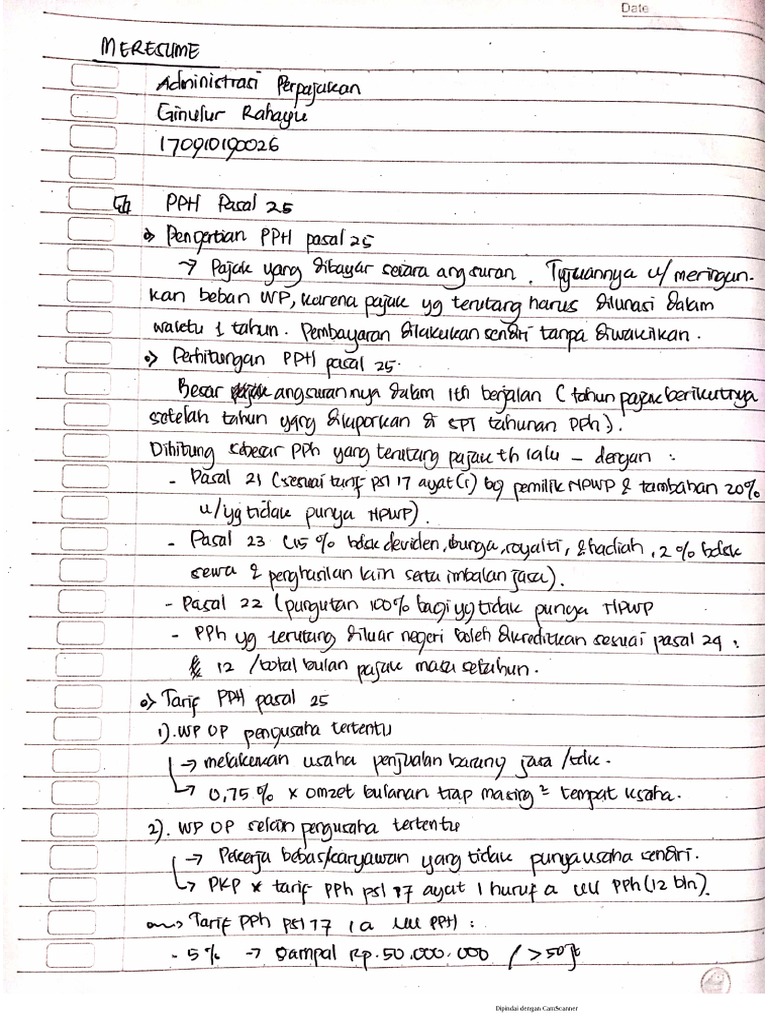 Date
MERESUME
Administrasi Perpajakan
Ginulur Rahayu
170910190026
PPH Pasal 25
Pengertian PPH pasal 25
→ Pajak yang dibayar secara angsuran. Tujuannya u/ meringan-
kan beban WP, karena pajak yg terutang harus dilunasi dalam
waktu 1 tahun. Pembayaran dilakukan sendiri tanpa diwakilkan.
Perhitungan PPH pasal 25.
Besar angsurannya dalam 1th berjalan (tahun pajak berikutnya
setelah tahun yang dilaporkan di SPT tahunan PPh).
Dihitung sebesar PPh yang terutang pajak th lalu - dengan :
- Pasal 21 (sesuai tarif psl 17 ayat (1) bg pemilik NPWP & tambahan 20%
u/ yg tidak punya NPWP).
- Pasal 23 (15% bdsk deviden, bunga, royalti, & hadiah, 2% bdsk
sewa & penghasilan lain serta imbalan jasa).
- Pasal 22 (pungutan 100% bagi yg tidak punya NPWP
- PPh yg terutang diluar negeri boleh dikreditkan sesuai pasal 24 :
12 / total bulan pajak masa setahun.
Tarif PPH pasal 25
1). WP OP pengusaha tertentu
→ melakukan usaha penjualan barang jasa / tdk.
→ 0,75% x omzet bulanan tiap masing² tempat usaha.
2). WP OP selain pengusaha tertentu
→ Pekerja bebas/karyawan yang tidak punya usaha sendiri.
→ PKP x tarif PPh psl 17 ayat 1 huruf a UU PPh (12 bln).
Tarif PPh psl 17 1 a UU PPH :
- 5% → sampai Rp. 50.000.000 / >50jt
Dipindai dengan CamScanner